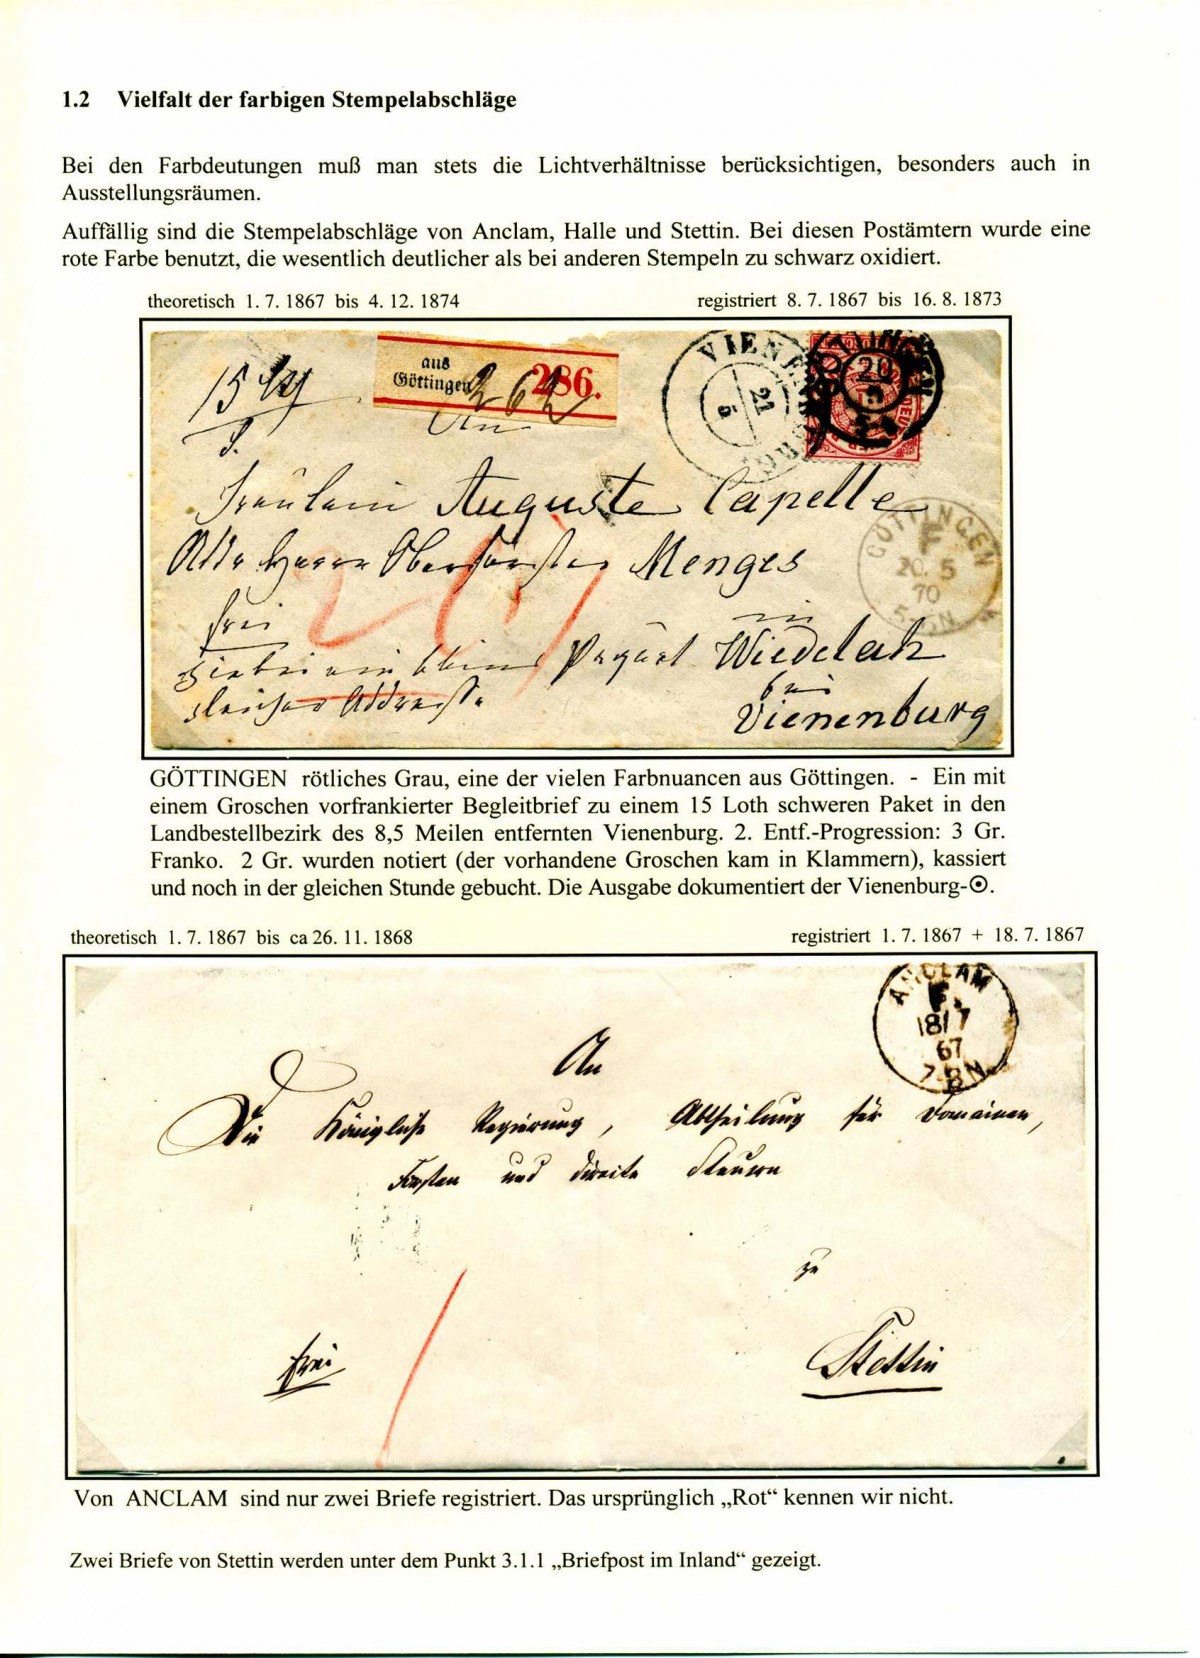 1.2 Vielfalt der farbigen Stempelabschläge
Bei den Farbdeutungen muß man stets die Lichtverhältnisse berücksichtigen, besonders auch in
Ausstellungsräumen.
Auffällig sind die Stempelabschläge von Anclam, Halle und Stettin. Bei diesen Postämtern wurde eine
rote Farbe benutzt, die wesentlich deutlicher als bei anderen Stempeln zu schwarz oxidiert.
theoretisch 1. 7. 1867 bis 4. 12. 1874
registriert 8. 7. 1867 bis 16. 8. 1873
aus
Göttingen
286.
262
VIENENBURG
21
5
GÖTTINGEN
20
5
An
Fräulein Auguste Capelle
Menges
GÖTTINGEN
F
20. 5
70
frei
in
Wiedelah
bei
Vienenburg
GÖTTINGEN rötliches Grau, eine der vielen Farbnuancen aus Göttingen. - Ein mit
einem Groschen vorfrankierter Begleitbrief zu einem 15 Loth schweren Paket in den
Landbestellbezirk des 8,5 Meilen entfernten Vienenburg. 2. Entf.-Progression: 3 Gr.
Franko. 2 Gr. wurden notiert (der vorhandene Groschen kam in Klammern), kassiert
und noch in der gleichen Stunde gebucht. Die Ausgabe dokumentiert der Vienenburg-⊙.
theoretisch 1. 7. 1867 bis ca 26. 11. 1868
registriert 1. 7. 1867 + 18. 7. 1867
ANCLAM
F.
18/7
67
7-8N
An
Die Königliche Regierung, Abtheilung für Domainen,
Forsten und direkte Steuern
zu
frei
Stettin
Von ANCLAM sind nur zwei Briefe registriert. Das ursprünglich „Rot“ kennen wir nicht.
Zwei Briefe von Stettin werden unter dem Punkt 3.1.1 „Briefpost im Inland“ gezeigt.